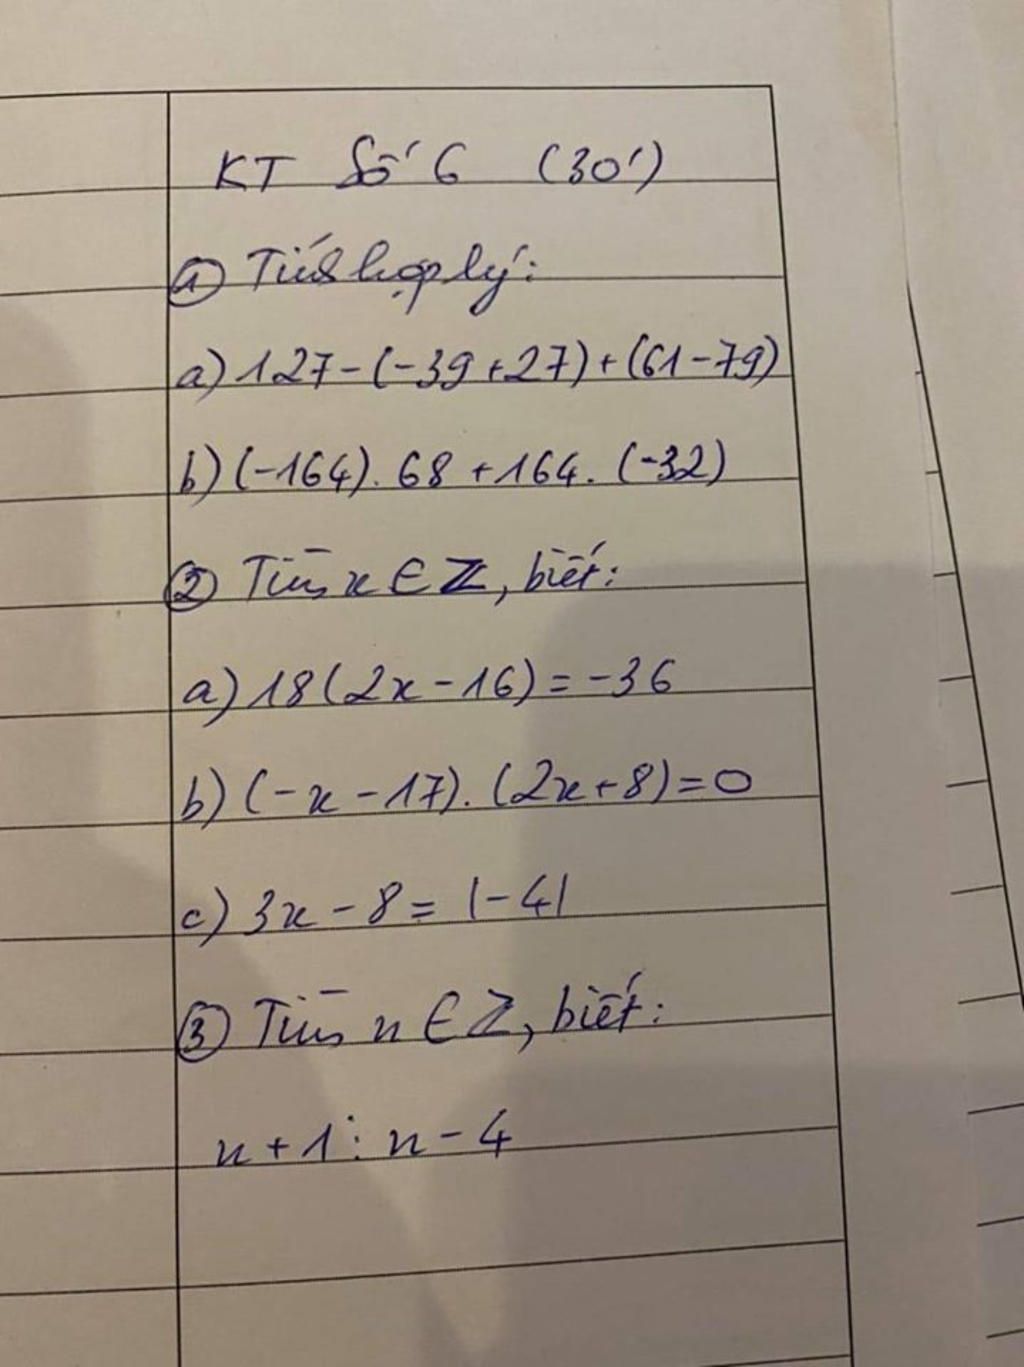 KT Số 6 (30')
① Tính hợp lý:
a) 127-(-39+27)+(61-79)
b) (-164). 68 +164. (-32)
② Tìm x ∈ Z, biết:
a) 18(2x-16)=-36
b) (-x-17). (2x+8)=0
c) 3x-8= |-4|
③ Tìm n ∈ Z, biết:
n+1 ⋮ n-4